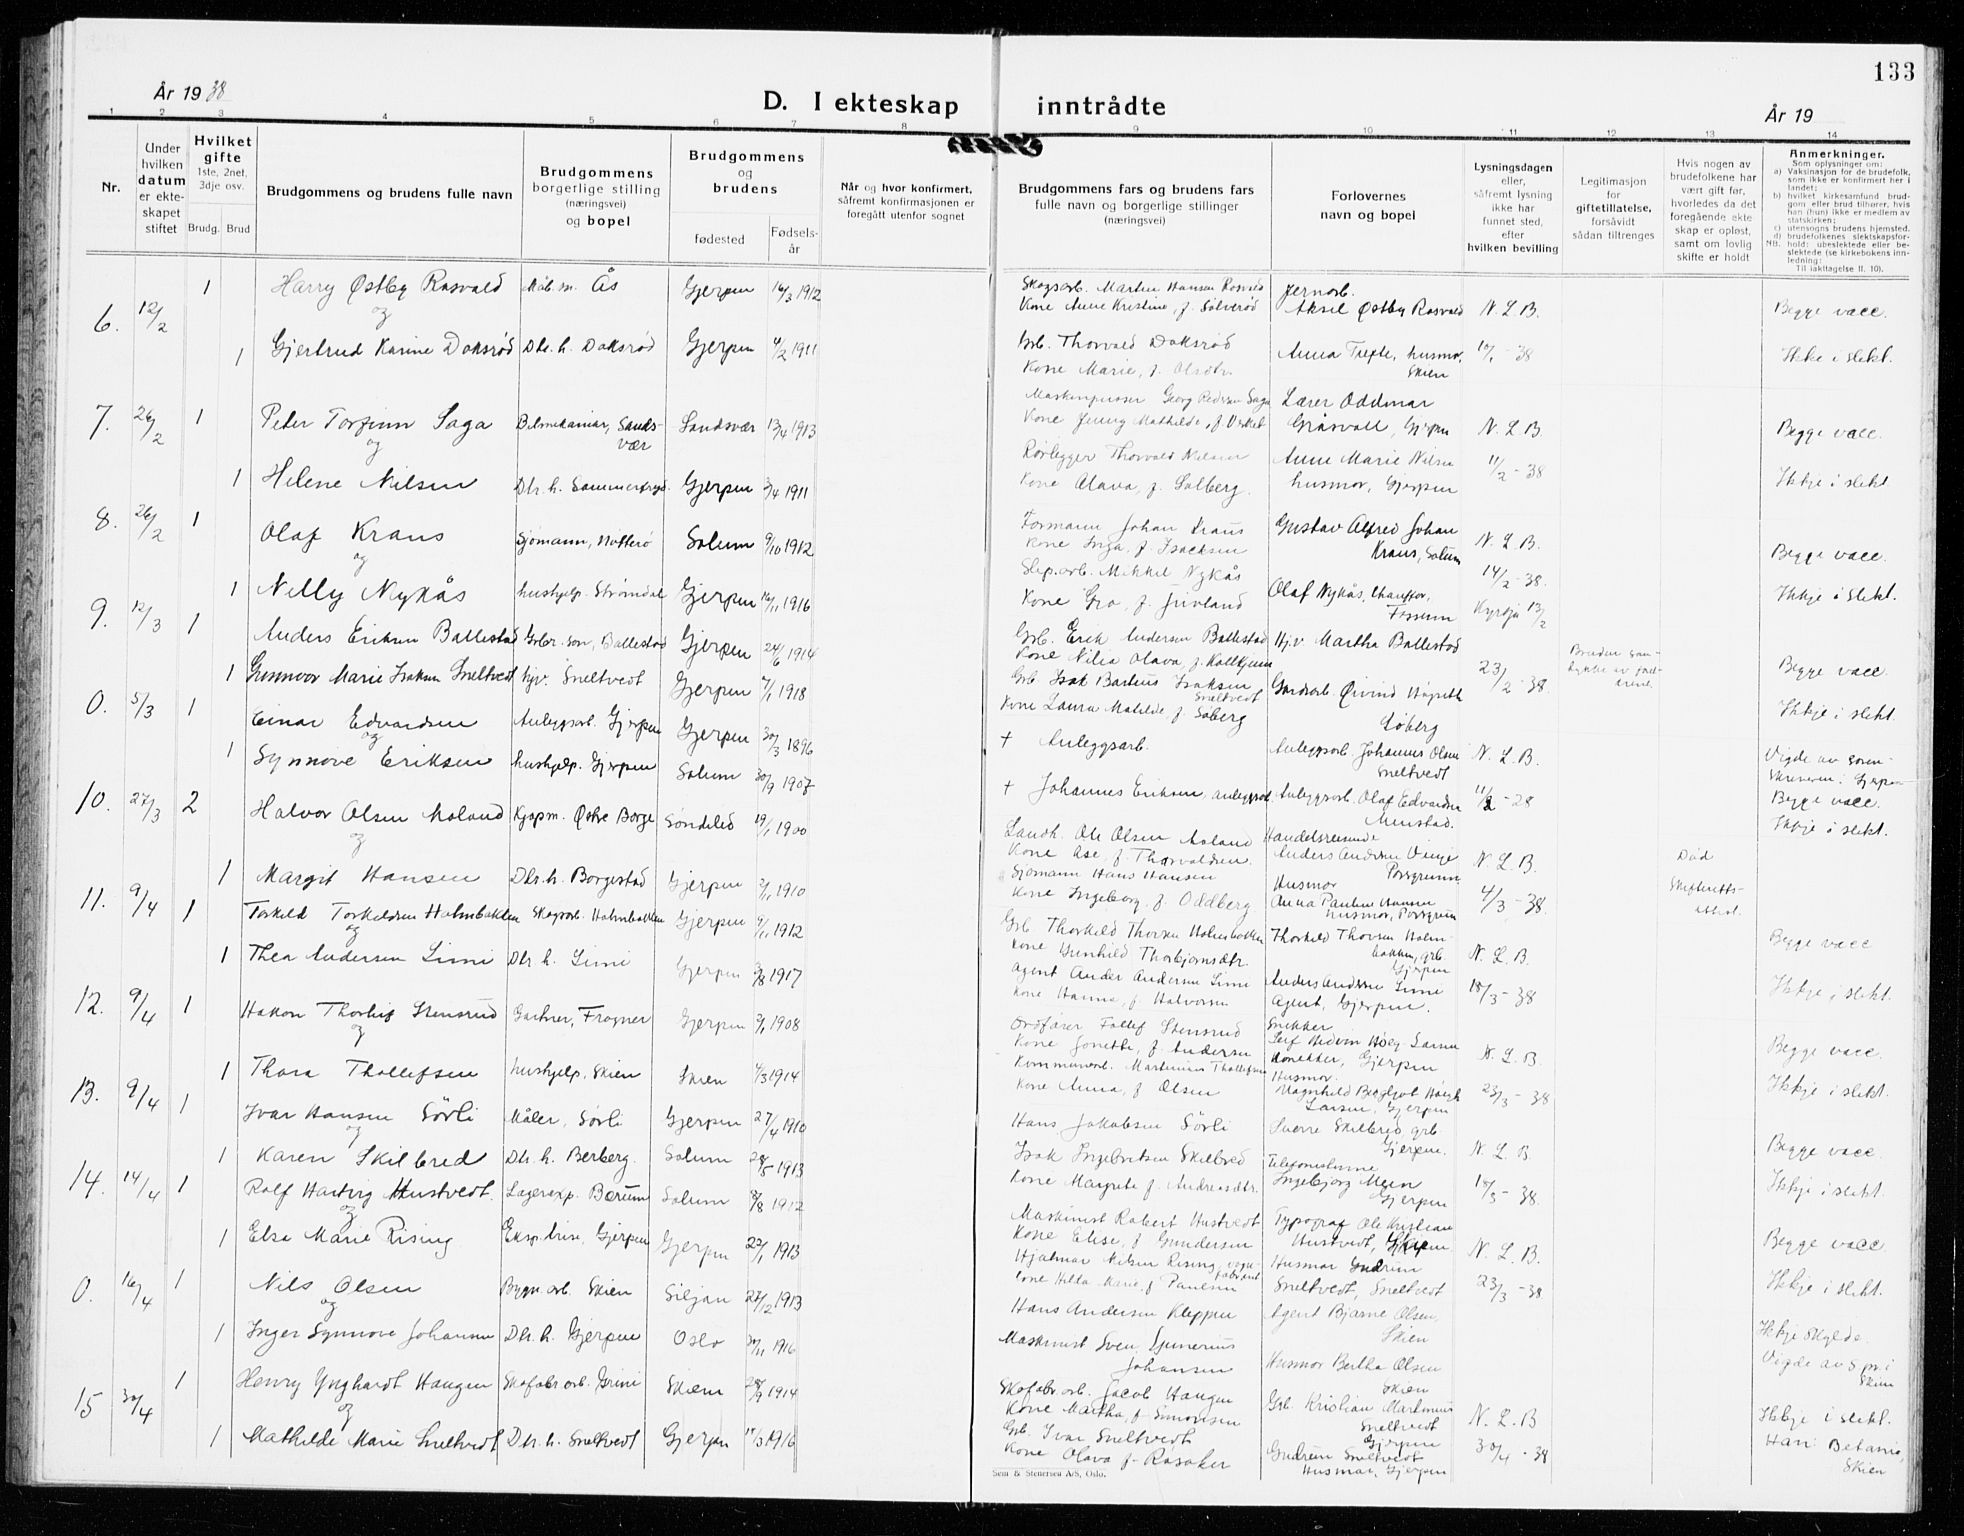 133
År 1938
D. I ekteskap inntrådte
År 19
1 2 3 4 5 6 7 8 9 10 11 12 13 14
Nr.
Under hvilken datum er ekteskapet stiftet
Hvilket gifte
1ste, 2net, 3dje osv.
Brudg. Brud
Brudgommens og brudens fulle navn
Brudgommens borgerlige stilling (næringsvei) og bopel
Brudgommens og brudens
fødested
Fødselsår
Når og hvor konfirmert, såfremt konfirmasjonen er foregått utenfor sognet
Brudgommens fars og brudens fars fulle navn og borgerlige stillinger (næringsvei)
Forlovernes navn og bopel
Lysningsdagen eller, såfremt lysning ikke har funnet sted, efter hvilken bevilling
Legitimasjon for giftetillatelse, forsåvidt sådan tiltrenges
Hvis nogen av brudefolkene har vært gift før, hvorledes da det foregående ekteskap er opløst, samt om lovlig skifte er holdt
Anmerkninger.
Som oplysninger om:
a) Vaksinasjon for de brudefolk, som ikke er konfirmert her i landet;
b) hvilket kirkesamfund brudgom eller brud tilhører, hvis han (hun) ikke er medlem av statskirken;
c) utensogns brudens hjemsted.
d) brudefolkenes slektskapsforhold: ubeslektede eller beslektede (se kirkebokens innledning:
NB. Til iakttagelse II. 10).
6. 12/2 1 Harry Østby Rasvald Ås Gjerpen 16/3 1912
og
1 Gjertrud Karine Doksrød Dtr. h. Doksrød Gjerpen 4/2 1911
Kone Anne Kristine, f. Solverød Aksel Østby Rasvald N. L. B. Begge vacc.
Grb. Thorvald Doksrød Anna Trefte, husmor, Skien 38 Ikke i slekt.
Kone Marie, f. Olsdtr.
7. 26/2 1 Peter Torfinn Saga Bilmekaniker, Sandsvær Sandsvær 13/4 1913
og
1 Helene Nilsen Dtr. h. Gjerpen 3/4 1911
Georg Pedersen Saga Lærer Oddmar Gråsvoll, Gjerpen N. L. B. Begge vacc.
Rørlegger Thorvald Nilsen Anne Marie Nilsen 11/2 - 38
Kone Olava, f. Solberg. husmor, Gjerpen Ikkje i slekt
8. 26/2 1 Olaf Kraus Sjømann, Nøtterø Solum 9/10 1912
og
1 Nelly Nykås hushjelp. Strømdal Gjerpen 16/11 1916
Formann Johan Kraus Gustav Alfred Johan Kraus, Solum N. L. B. Begge vacc.
Kone Inga, f. Isacksen
Slip.arb. Mikkel Nykås Olaf Nykås, Chauffør, Fossum 14/2 - 38. Ikkje i slekt.
Kone Gro, f. Juvland Kyrkja 13/2
9. 12/3 1 Anders Eriksen Ballestad Grbr. søn, Ballestad Gjerpen 24/6 1914
1 Gunnvor Marie Isaksen Sneltvedt hjv. Sneltvedt Gjerpen 7/1 1918
Grb. Erik Andersen Ballestad Hj.v. Martha Ballestad Begge vacc.
Kone Nilia Olava, f. 23/2 - 38
Grb. Isak Bartius Isaksen Sneltvedt Gardsarb. Øivind Høgseth Søberg Ikkje i slekt.
Kone Laura Matilde, f. Søberg
0. 5/3 1 Einar Edvardsen Anleggsarb. Gjerpen Gjerpen 30/3 1896
og
1 Synnøve Eriksen hushjelp. Gjerpen Solum 30/9 1907
† Anleggsarb. Anleggsarb. Johannes Olsen Sneltvedt N. L. B. Vigde av sorenskriveren i Gjerpen
† Johannes Eriksen, anleggsarb. Anleggsarb. Olaf Edvardsen Menstad. 11/2 - 28 Begge vacc.
Ikkje i slekt.
10. 27/3 2 Halvor Olsen Moland Kjøpm. Østre Borge Søndeled 19/1 1900
og
1 Margit Hansen Dtr. h. Borgestad Gjerpen 3/1 1910
Landh. Ole Olsen Moland Handelsreisende Anders Andersen Vinje Porsgrunn N. L. B. Død
Kone Åse, f. Thorvaldsen.
Sjømann Hans Hansen Husmor Anna Pauline Hansen husmor, Porsgrunn 4/3 - 38. Skifterettsattest.
Kone Ingeborg, f. Oddberg
11. 9/4 1 Torkild Torkildsen Holmbakken Skogsarb. Holmbakken Gjerpen 9/1 1912
og
1 Thea Andersen Limi Dtr. h. Limi Gjerpen 3/8 1917
Grb. Thorkild Thorsen Holmbakken Thorkild Thorsen Holmbakken, grb. Gjerpen N. L. B. Begge vacc
Kone Gunhild Thorbjørnsdtr.
Agent Ander Andersen Limi Anders Andersen Limi 18/3 - 38
Kone Hanna, f. Halvorsen Agent, Gjerpen. Ikkje i slekt.
12. 9/4 1 Håkon Thorleif Stensrud Gartner, Frogner Gjerpen 3/1 1908
og
1 Thora Thollefsen hushjelp, Skien Skien 4/3 1914
Ordfører Tollef Stensrud Snikker Leif Hedvin Høeg-Larsen N. L. B. Begge vacc.
Kone Jonette, f. Andersen Gjerpen
Martinius Thollefsen Husmor.
Kone Anna, f. Olsen Magnhild Bergljot Høegh Larsen, Gjerpen 23/3 - 38 Ikkje i slekt.
13. 9/4 1 Ivar Hansen Sørli Måler, Sørli Gjerpen 27/4 1910
og
1 Karen Skilbred Dtr. h. Berberg. Solum 28/5 1913
Hans Jakobsen Sörli Sverre Skilbred grb. Gjerpen. N. L. B. Begge vacc.
Isak Ingebretsen Skilbred Telefonistinne
Kone Margrete f. Andreasdtr. Ingebjørg Meen Gjerpen 18/3 - 38. Ikkje i slekt.
14. 14/4 1 Rolf Hartvig Hustvedt. Lagereksp. Bærum Solum 8/8 1912
og
1 Elsa Marie Rising Ekspetrise, Gjerpen Gjerpen 23/1 1913
Maskinist Robert Hustvedt Typograf Ole Kristian Hustvedt, Skien N. L. B. Begge vacc.
Kone Elise, f. Gundersen
Hjalmar Nilsen Rising, vognfabrikant Husmor Gudrun Sneltvedt, Sneltvedt 23/3 - 38 Ikkje i slekt.
Kone Hilda Marie f. Paulsen
0. 16/4 1 Nils Olsen Bygn.arb. Skien Siljan 27/12 1913
og
1 Inger Synnøve Johansen Dtr. h. Gjerpen Oslo 30/11 1916
Hans Andersen Kleppen Agent Bjarne Olsen, Skien Ikkje skylde.
Maskinist Sven Gunerius Johansen Husmor Bertha Olsen Skien Vigde av s.pr. i Skien
15 30/4 1 Henry Ynghardt Haugen Skofabr.arb. Grini Skien 28/9 1914
og
1 Mathilde Marie Sneltvedt Dtr. h. Sneltvedt Gjerpen 1916
Skofabr.arb. Jacob Haugen Grb. Kristian Martinius Sneltvedt Gjerpen N. L. B Ikkje i slekt.
Kone Martha, f. Simonsen
Grb. Ivar Sneltvedt Gudrun Sneltvedt Husmor, Gjerpen 30/4 - 38 Han: Betania, Skien
Kone Olava f. Rasaker
Sem & Stenersen A/S, Oslo.